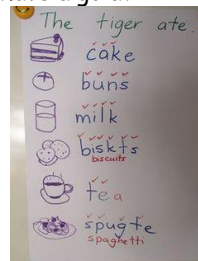 The tiger ate.
cake
buns
milk
biskts
biscuits
tea
spugte
spaghetti